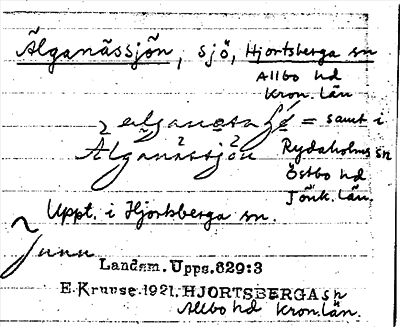 Älganässjön, sjö, Hjortsberga sn
Allbo hd
Kron. län
= samt i
Älganässjön Rydaholms sn
Östbo hd
Jönk. län.
Uppt. i Hjortsberga sn.
Landsm. Upps. 629:3
E. Kruuse 1921. HJORTSBERGA sn
Allbo hd Kron. län.